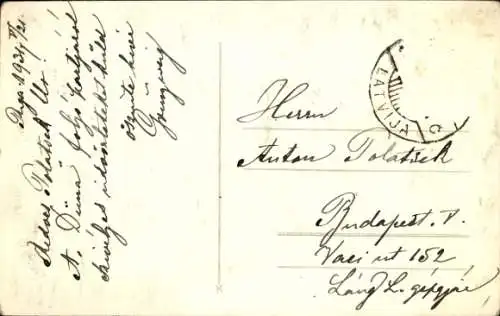 Riga 1931 V/21.
Kedves Polatsek Úr!
A "Düna" folyó partjáról
szívélyes üdvözletet küld
őszinte híve
Herrn
Anton Polatsek
Budapest. V.
Vaci ut 152
Láng L. gépgyár
LATVIJA